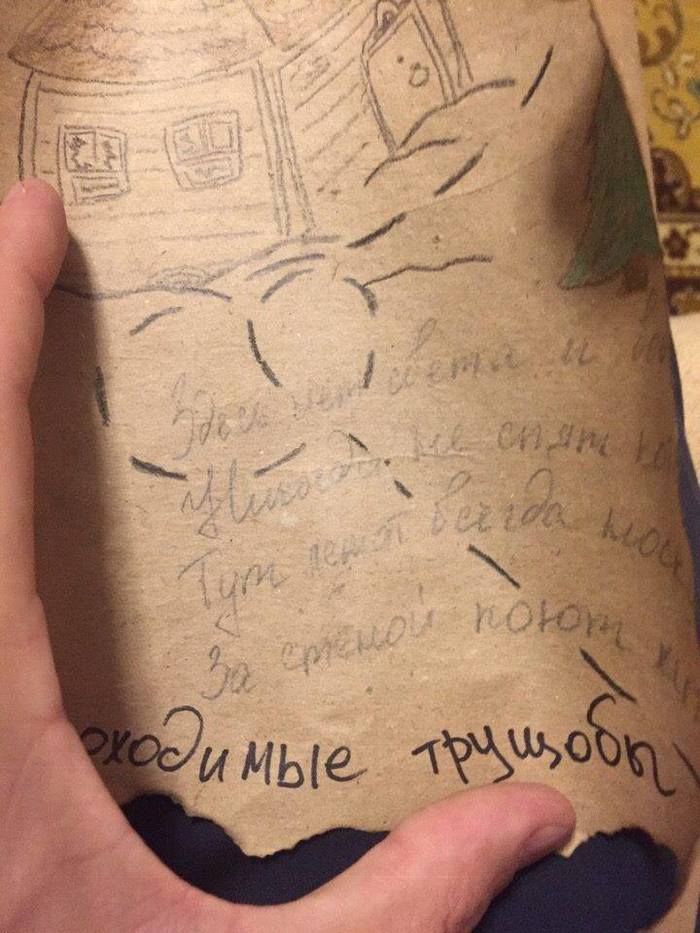 Здесь нет света и
Никогда не спят
Тут всегда
За стеной поют
оходимые трущобы